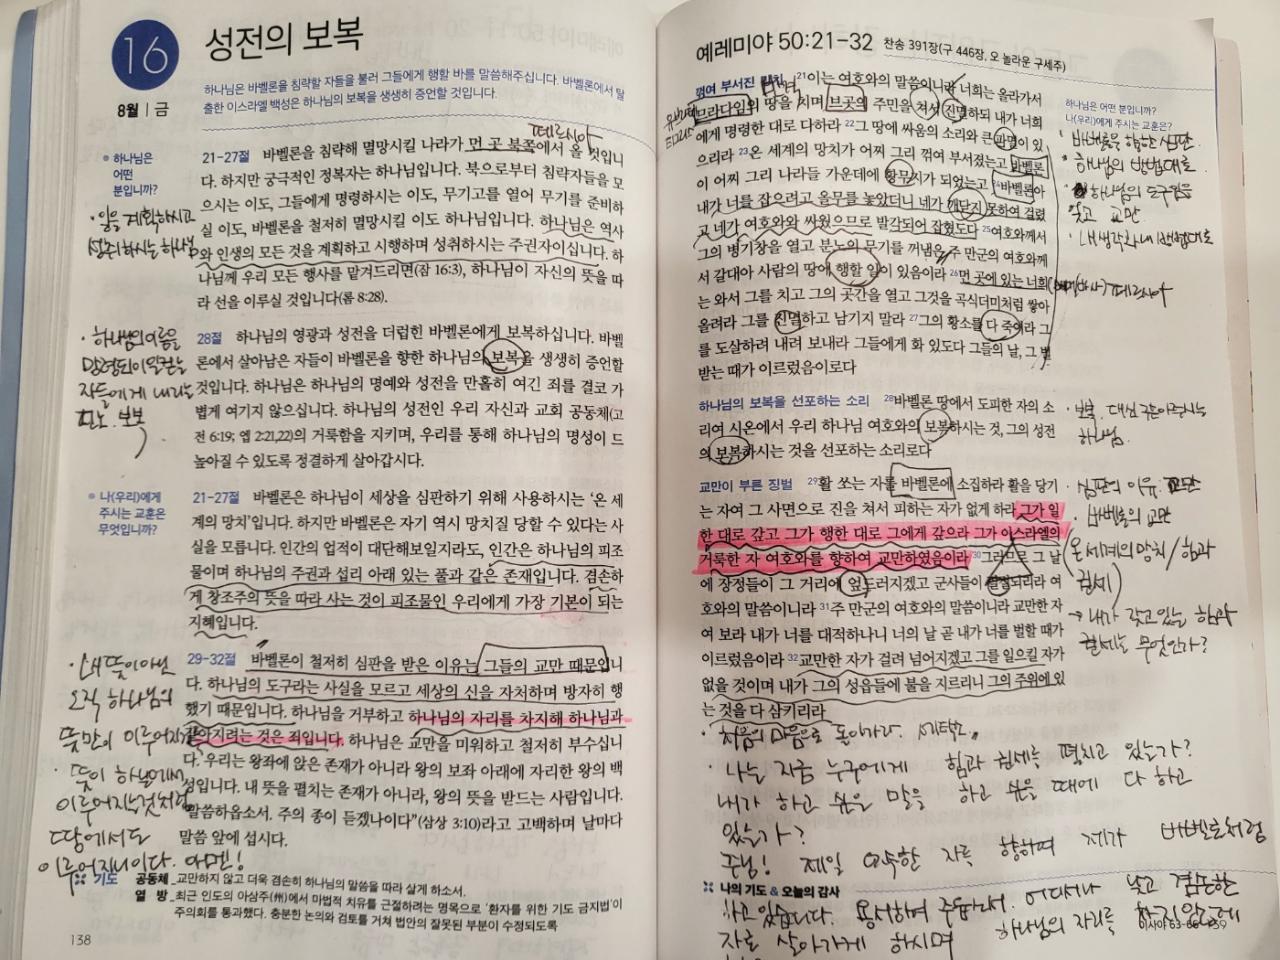 16
8월 | 금
성전의 보복
하나님은 바벨론을 침략할 자들을 불러 그들에게 행할 바를 말씀해주십니다. 바벨론에서 탈
출한 이스라엘 백성은 하나님의 보복을 생생히 증언할 것입니다.
페르시아
하나님은
어떤
분입니까?
21-27절 바벨론을 침략해 멸망시킬 나라가 먼 곳 북쪽에서 올 것입니
다. 하지만 궁극적인 정복자는 하나님입니다. 북으로부터 침략자들을 모
으시는 이도, 그들에게 명령하시는 이도, 무기고를 열어 무기를 준비하
실 이도, 바벨론을 철저히 멸망시킬 이도 하나님입니다. 하나님은 역사
와 인생의 모든 것을 계획하고 시행하며 성취하시는 주권자이십니다. 하
나님께 우리 모든 행사를 맡겨드리면(잠 16:3), 하나님이 자신의 뜻을 따
라 선을 이루실 것입니다(롬 8:28).
· 일을 계획하시고
성취하시는 하나님
28절 하나님의 영광과 성전을 더럽힌 바벨론에게 보복하십니다. 바벨
론에서 살아남은 자들이 바벨론을 향한 하나님의 보복을 생생히 증언할
것입니다. 하나님은 하나님의 명예와 성전을 만홀히 여긴 죄를 결코 가
볍게 여기지 않으십니다. 하나님의 성전인 우리 자신과 교회 공동체(고
전 6:19; 엡 2:21,22)의 거룩함을 지키며, 우리를 통해 하나님의 명성이 드
높아질 수 있도록 정결하게 살아갑시다.
· 하나님의 이름을
자들에게 내리는
보복
나(우리)에게
주시는 교훈은
무엇입니까?
21-27절 바벨론은 하나님이 세상을 심판하기 위해 사용하시는 ‘온 세
계의 망치’입니다. 하지만 바벨론은 자기 역시 망치질 당할 수 있다는 사
실을 모릅니다. 인간의 업적이 대단해보일지라도, 인간은 하나님의 피조
물이며 하나님의 주권과 섭리 아래 있는 풀과 같은 존재입니다. 겸손하
게 창조주의 뜻을 따라 사는 것이 피조물인 우리에게 가장 기본이 되는
지혜입니다.
29-32절 바벨론이 철저히 심판을 받은 이유는 그들의 교만 때문입니
다. 하나님의 도구라는 사실을 모르고 세상의 신을 자처하며 방자히 행
했기 때문입니다. 하나님을 거부하고 하나님의 자리를 차지해 하나님과
같아지려는 것은 죄입니다. 하나님은 교만을 미워하고 철저히 부수십니
다. 우리는 왕좌에 앉은 존재가 아니라 왕의 보좌 아래에 자리한 왕의 백
성입니다. 내 뜻을 펼치는 존재가 아니라, 왕의 뜻을 받드는 사람입니다.
“말씀하옵소서. 주의 종이 듣겠나이다”(삼상 3:10)라고 고백하며 날마다
말씀 앞에 섭시다.
· 내 뜻이 아닌
오직 하나님의
뜻만이 이루어지길
· 뜻이 하늘에서
이루어진것처럼
땅에서도
이루어지이다. 아멘!
기도 공동체_교만하지 않고 더욱 겸손히 하나님의 말씀을 따라 살게 하소서.
열 방_최근 인도의 아삼주(州)에서 마법적 치유를 근절하려는 명목으로 ‘환자를 위한 기도 금지법’이
주의회를 통과했다. 충분한 논의와 검토를 거쳐 법안의 잘못된 부분이 수정되도록
138
예레미야 50:21-32 찬송 391장(구 446장, 오 놀라운 구세주)
꺾여 부서진 망치 21이는 여호와의 말씀이니라 너희는 올라가서
므라다임의 땅을 치며 브곳의 주민을 쳐서 진멸하되 내가 너희
에게 명령한 대로 다하라 22그 땅에 싸움의 소리와 큰 파멸이 있
으리라 23온 세계의 망치가 어찌 그리 꺾여 부서졌는고 바벨론
이 어찌 그리 나라들 가운데에 황무지가 되었는고 24바벨론아
내가 너를 잡으려고 올무를 놓았더니 네가 깨닫지 못하여 걸렸
고 네가 여호와와 싸웠으므로 발각되어 잡혔도다 25여호와께서
그의 병기창을 열고 분노의 무기를 꺼냄은 주 만군의 여호와께
서 갈대아 사람의 땅에 행할 일이 있음이라 26먼 곳에 있는 너희
는 와서 그를 치고 그의 곳간을 열고 그것을 곡식더미처럼 쌓아
올려라 그를 진멸하고 남기지 말라 27그의 황소를 다 죽이라 그
를 도살하려 내려 보내라 그들에게 화 있도다 그들의 날, 그 벌
받는 때가 이르렀음이로다
하나님의 보복을 선포하는 소리 28바벨론 땅에서 도피한 자의 소
리여 시온에서 우리 하나님 여호와의 보복하시는 것, 그의 성전
의 보복하시는 것을 선포하는 소리로다
교만이 부른 징벌 29활 쏘는 자를 바벨론에 소집하라 활을 당기
는 자여 그 사면으로 진을 쳐서 피하는 자가 없게 하라 그가 일
한 대로 갚고 그가 행한 대로 그에게 갚으라 그가 이스라엘의
거룩한 자 여호와를 향하여 교만하였음이라 30그러므로 그 날
에 장정들이 그 거리에 엎드러지겠고 군사들이 멸절되리라 여
호와의 말씀이니라 31주 만군의 여호와의 말씀이니라 교만한 자
여 보라 내가 너를 대적하나니 너의 날 곧 내가 너를 벌할 때가
이르렀음이라 32교만한 자가 걸려 넘어지겠고 그를 일으킬 자가
없을 것이며 내가 그의 성읍들에 불을 지르리니 그의 주위에 있
는 것을 다 삼키리라
하나님은 어떤 분입니까?
나(우리)에게 주시는 교훈은?
· 바벨론을 향한 심판
· 하나님의 방법대로
· 하나님의 도구임을
잊고 교만
· 내 생각과 내 방법대로
페르시아
하나님.
· 심판의 이유. 교만
· 바벨론의 교만
(온 세계의 망치 / 힘과
권세)
→ 내가 갖고있는 힘과
권세는 무엇인가?
· 처음의 마음으로 돌아가라.
· 나는 지금 누구에게 힘과 권세를 떨치고 있는가?
내가 하고 싶은 말을 하고 싶은 때에 다 하고
있는가?
주님! 제일 약한 자를 향하여 제가 바벨론처럼
나의 기도 & 오늘의 감사
하고 있습니다. 용서하여 주옵소서. 낮고 겸손한
자로 살아가게 하시며 하나님의 자리를 차지않게
이사야 63-66